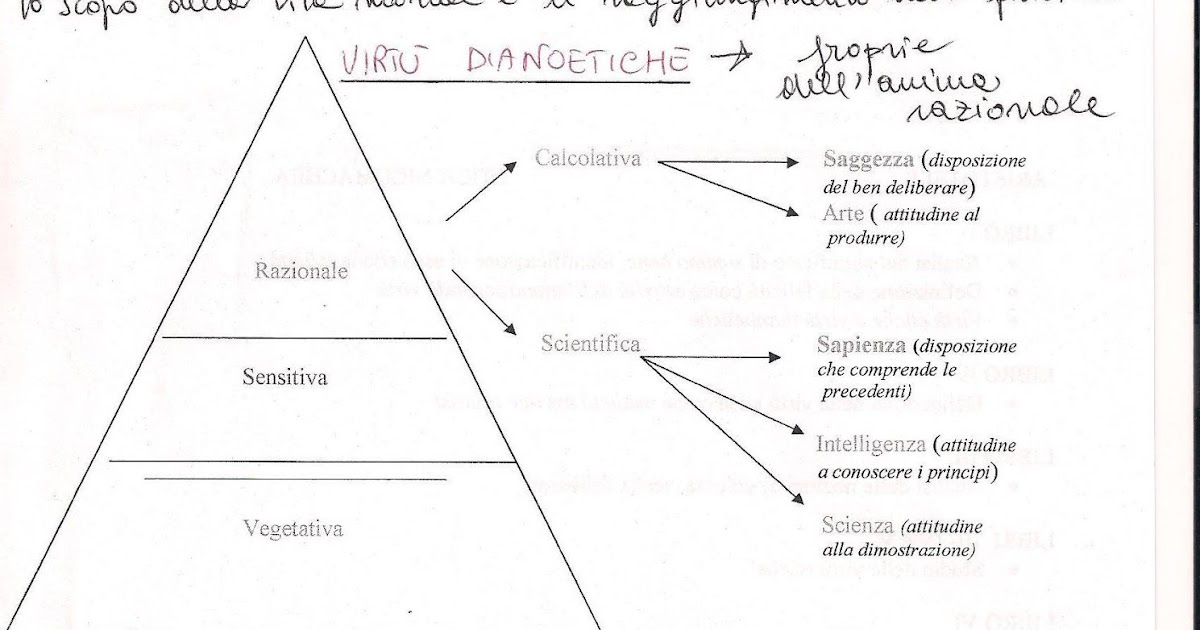 lo scopo della vita morale è il raggiungimento
VIRTÙ DIANOETICHE → proprie
dell'anima
razionale
Calcolativa
Saggezza (disposizione
del ben deliberare)
Arte ( attitudine al
produrre)
Razionale
Scientifica
Sapienza (disposizione
che comprende le
precedenti)
Sensitiva
Intelligenza (attitudine
a conoscere i principi)
Vegetativa
Scienza (attitudine
alla dimostrazione)